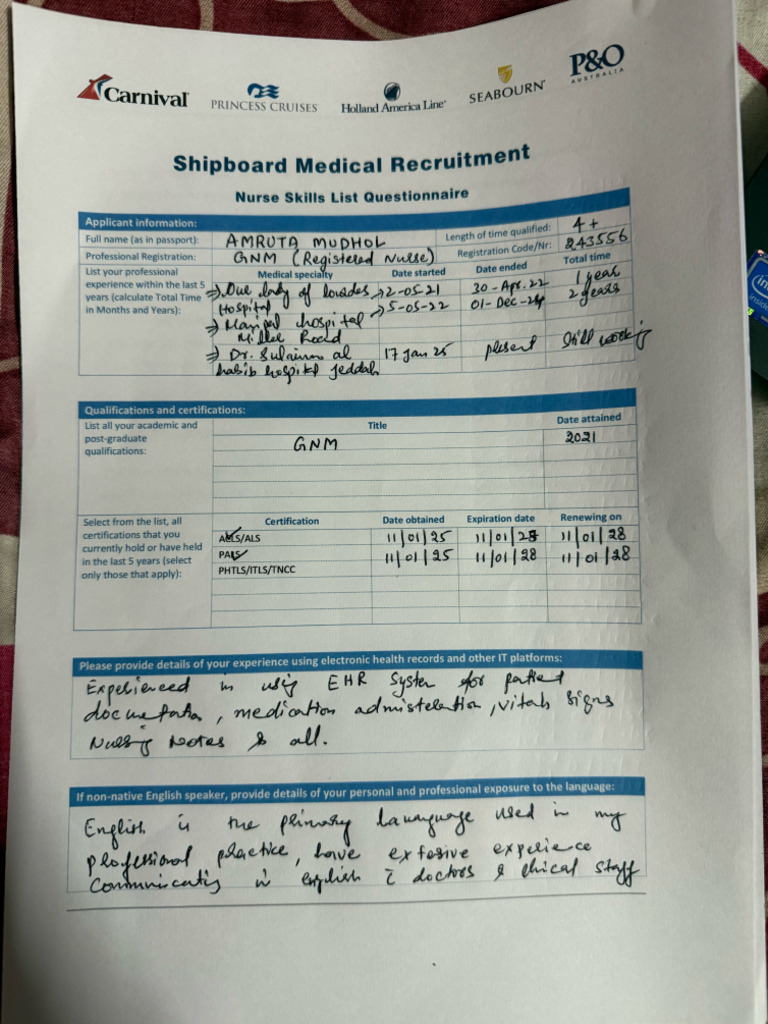 Carnival PRINCESS CRUISES Holland America Line SEABOURN P&O AUSTRALIA
Shipboard Medical Recruitment
Nurse Skills List Questionnaire
Applicant information:
Full name (as in passport): AMRUTA MUDHOL Length of time qualified: 4+
Professional Registration: GNM (Registered Nurse) Registration Code/Nr: 243556
List your professional experience within the last 5 years (calculate Total Time in Months and Years):
Medical specialty Date started Date ended Total time
⇒ Our lady of lourdes 2-05-21 30-Apr-22 1 year
Hospital → 5-05-22 01-Dec-24 2 years
⇒ Manipal hospital
Miller Road
⇒ Dr. Sulaiman al 17 Jan 25 present Still working
habib hospital Jeddah
Qualifications and certifications:
List all your academic and post-graduate qualifications:
Title Date attained
GNM 2021
Select from the list, all certifications that you currently hold or have held in the last 5 years (select only those that apply):
Certification Date obtained Expiration date Renewing on
ACLS/ALS 11/01/25 11/01/28 11/01/28
PALS 11/01/25 11/01/28 11/01/28
PHTLS/ITLS/TNCC
Please provide details of your experience using electronic health records and other IT platforms:
Experienced in using EHR System for patient
, medication , vitals signs
Nursing Notes & all.
If non-native English speaker, provide details of your personal and professional exposure to the language:
English is the primary used in my
professional practice, have experience
in english c̄ doctors & staff
intel
inside